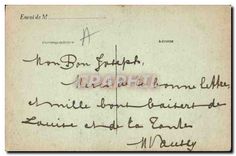 Envoi de M
Correspondance Adresse
A
Mon Bon Joseph,
Merci de ta bonne lettre,
et mille bons baisers de
Louise et de ta Tante